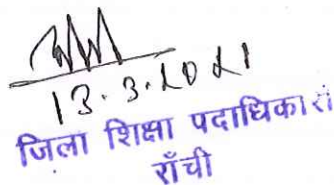 13.3.2021
जिला शिक्षा पदाधिकारी
राँची